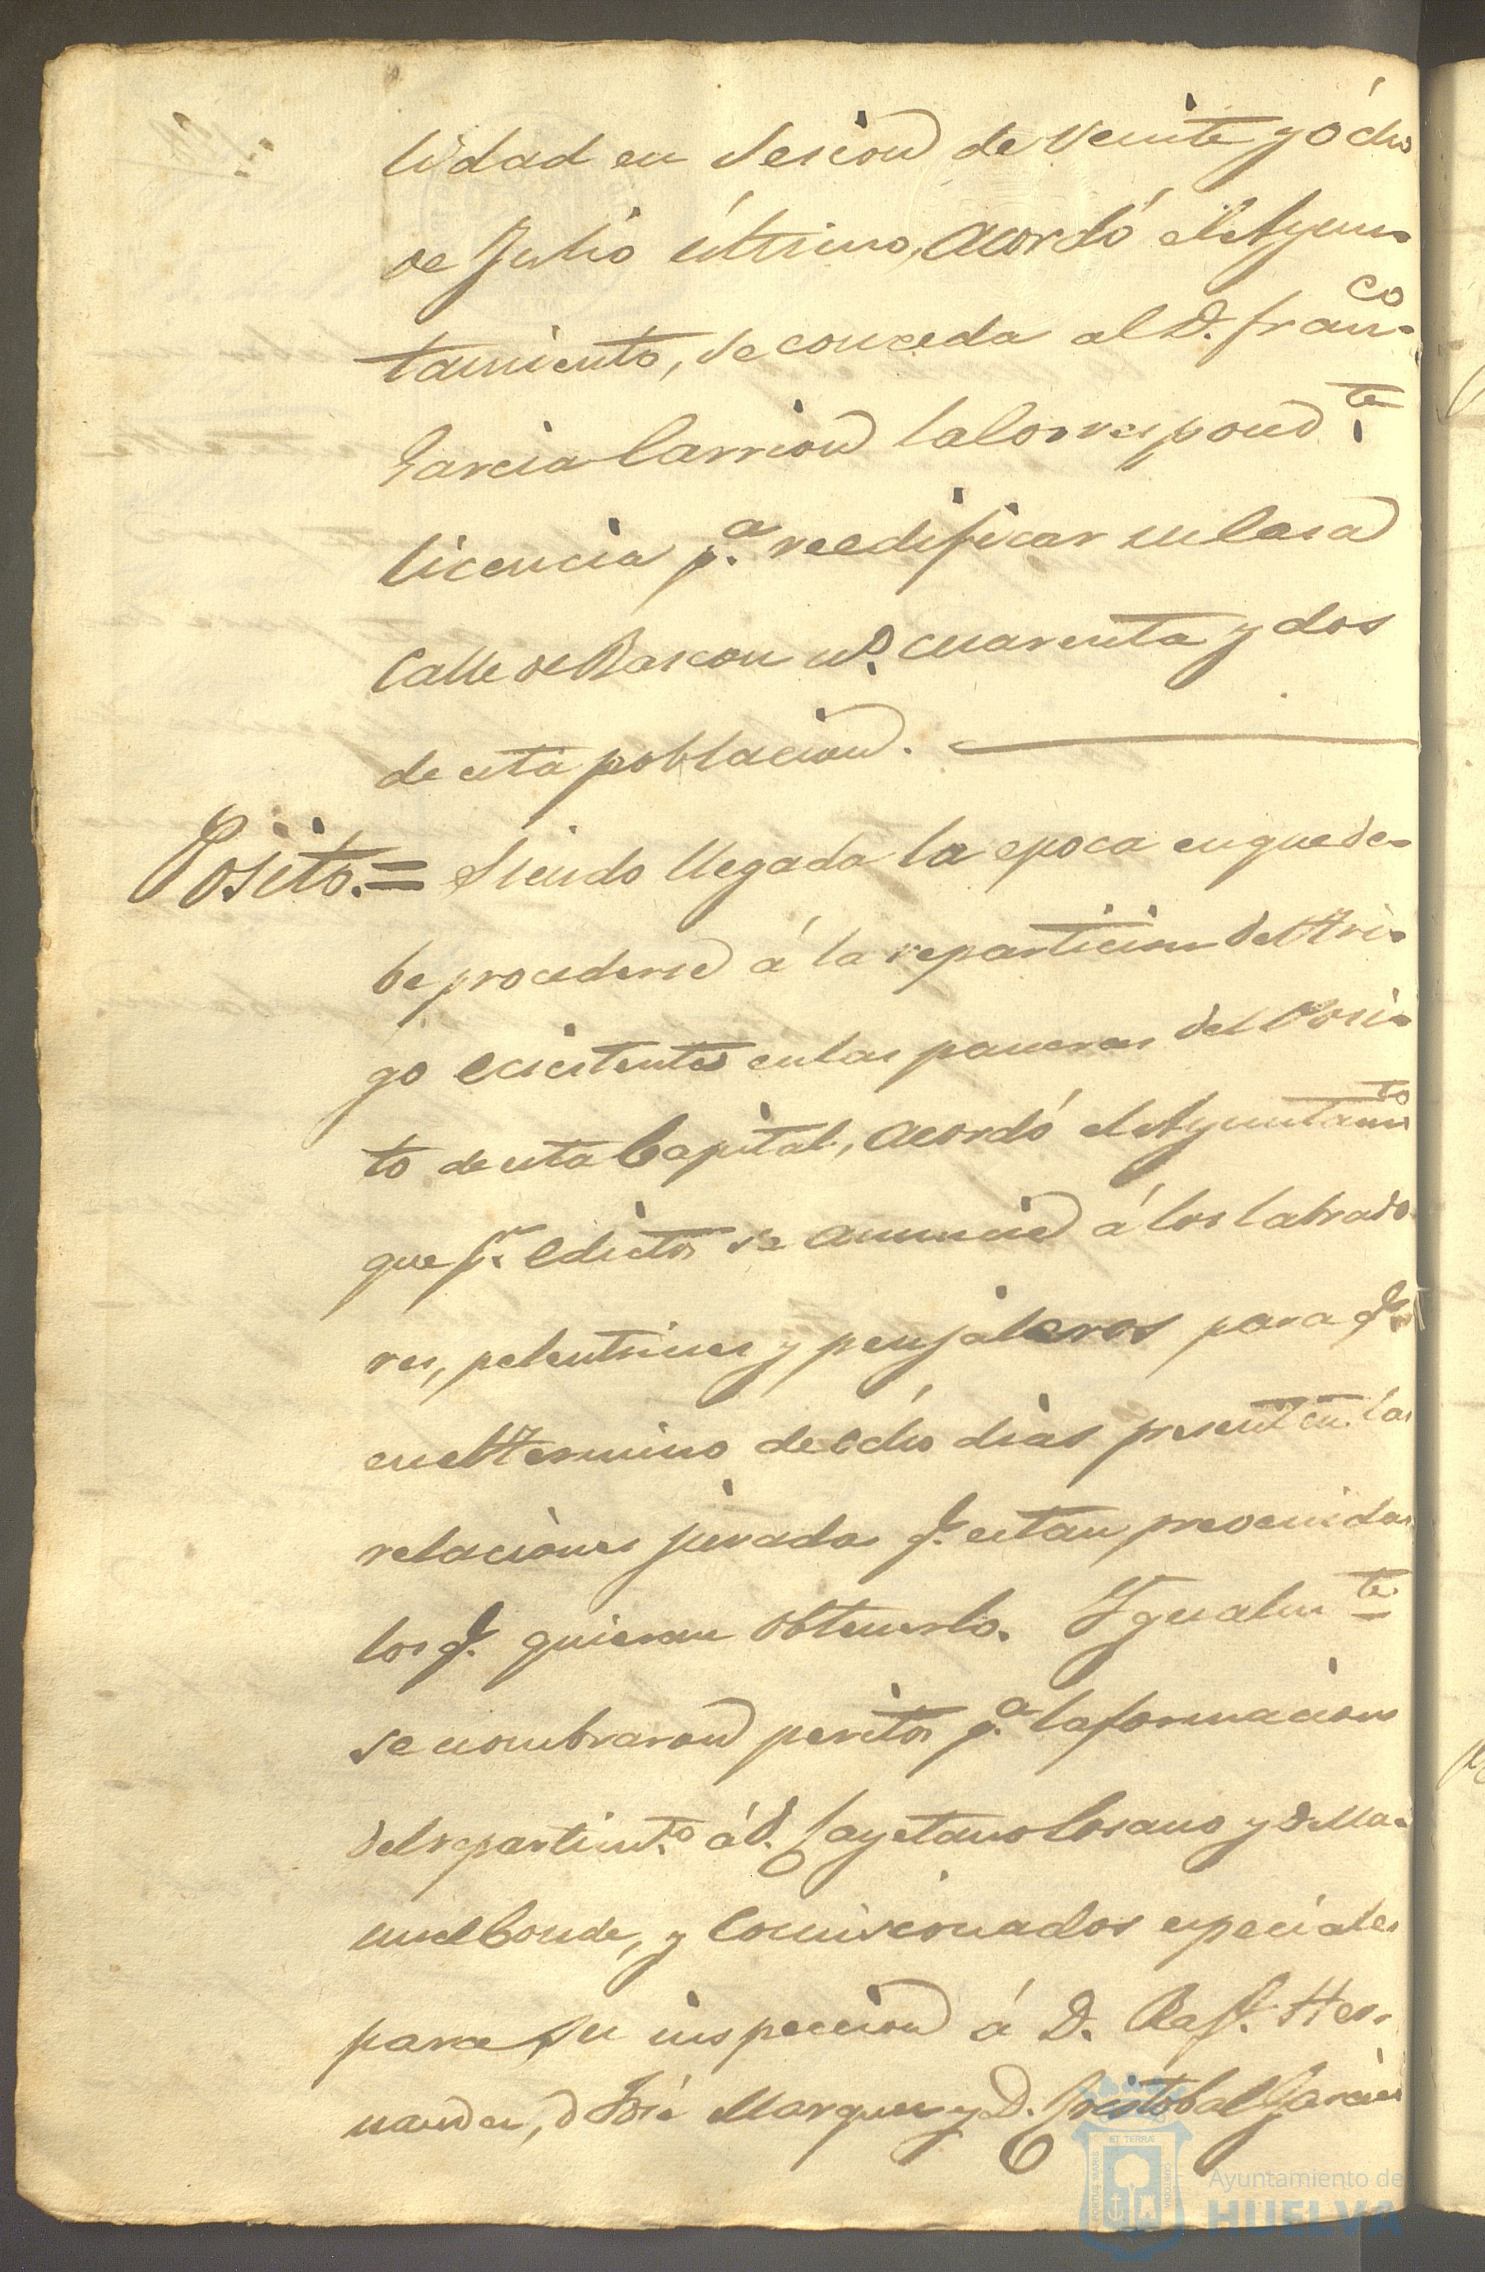 lidad en Sesion de Veinte y ócho
de Julio último, Acordó el Ayun-
tamiento, se conceda al D. Franco
Garcia Carrion la Correspondte
licencia pa. reedificar su Casa
Calle de Rascon no. cuarenta y dos
de esta poblacion.
Posito.= Siendo llegada la epoca en que de-
be procederse á la reparticion del tri-
go ecsistente en las paneras del Posi-
to de esta Capital, acordó el Ayuntamto
que pr. edictos se anuncie á los labrado
res, pelentrines y penjaleros para q.
en el termino de ócho dias presenten las
relaciones juradas q. estan prevenidas
los q. quieran obtenerlo. Ygualmte
se nombraron peritos pa. la formacion
del repartimto. á D. Cayetano Cosano y D. Ma-
nuel Conde, y Comisionados especiales
para su inspeccion á D. Rafl. Her-
nandez, D José Marquez y D. Cristobal Garcia
ET TERRAE
PORTUS MARIS
CUSTODIA
Ayuntamiento de
HUELVA